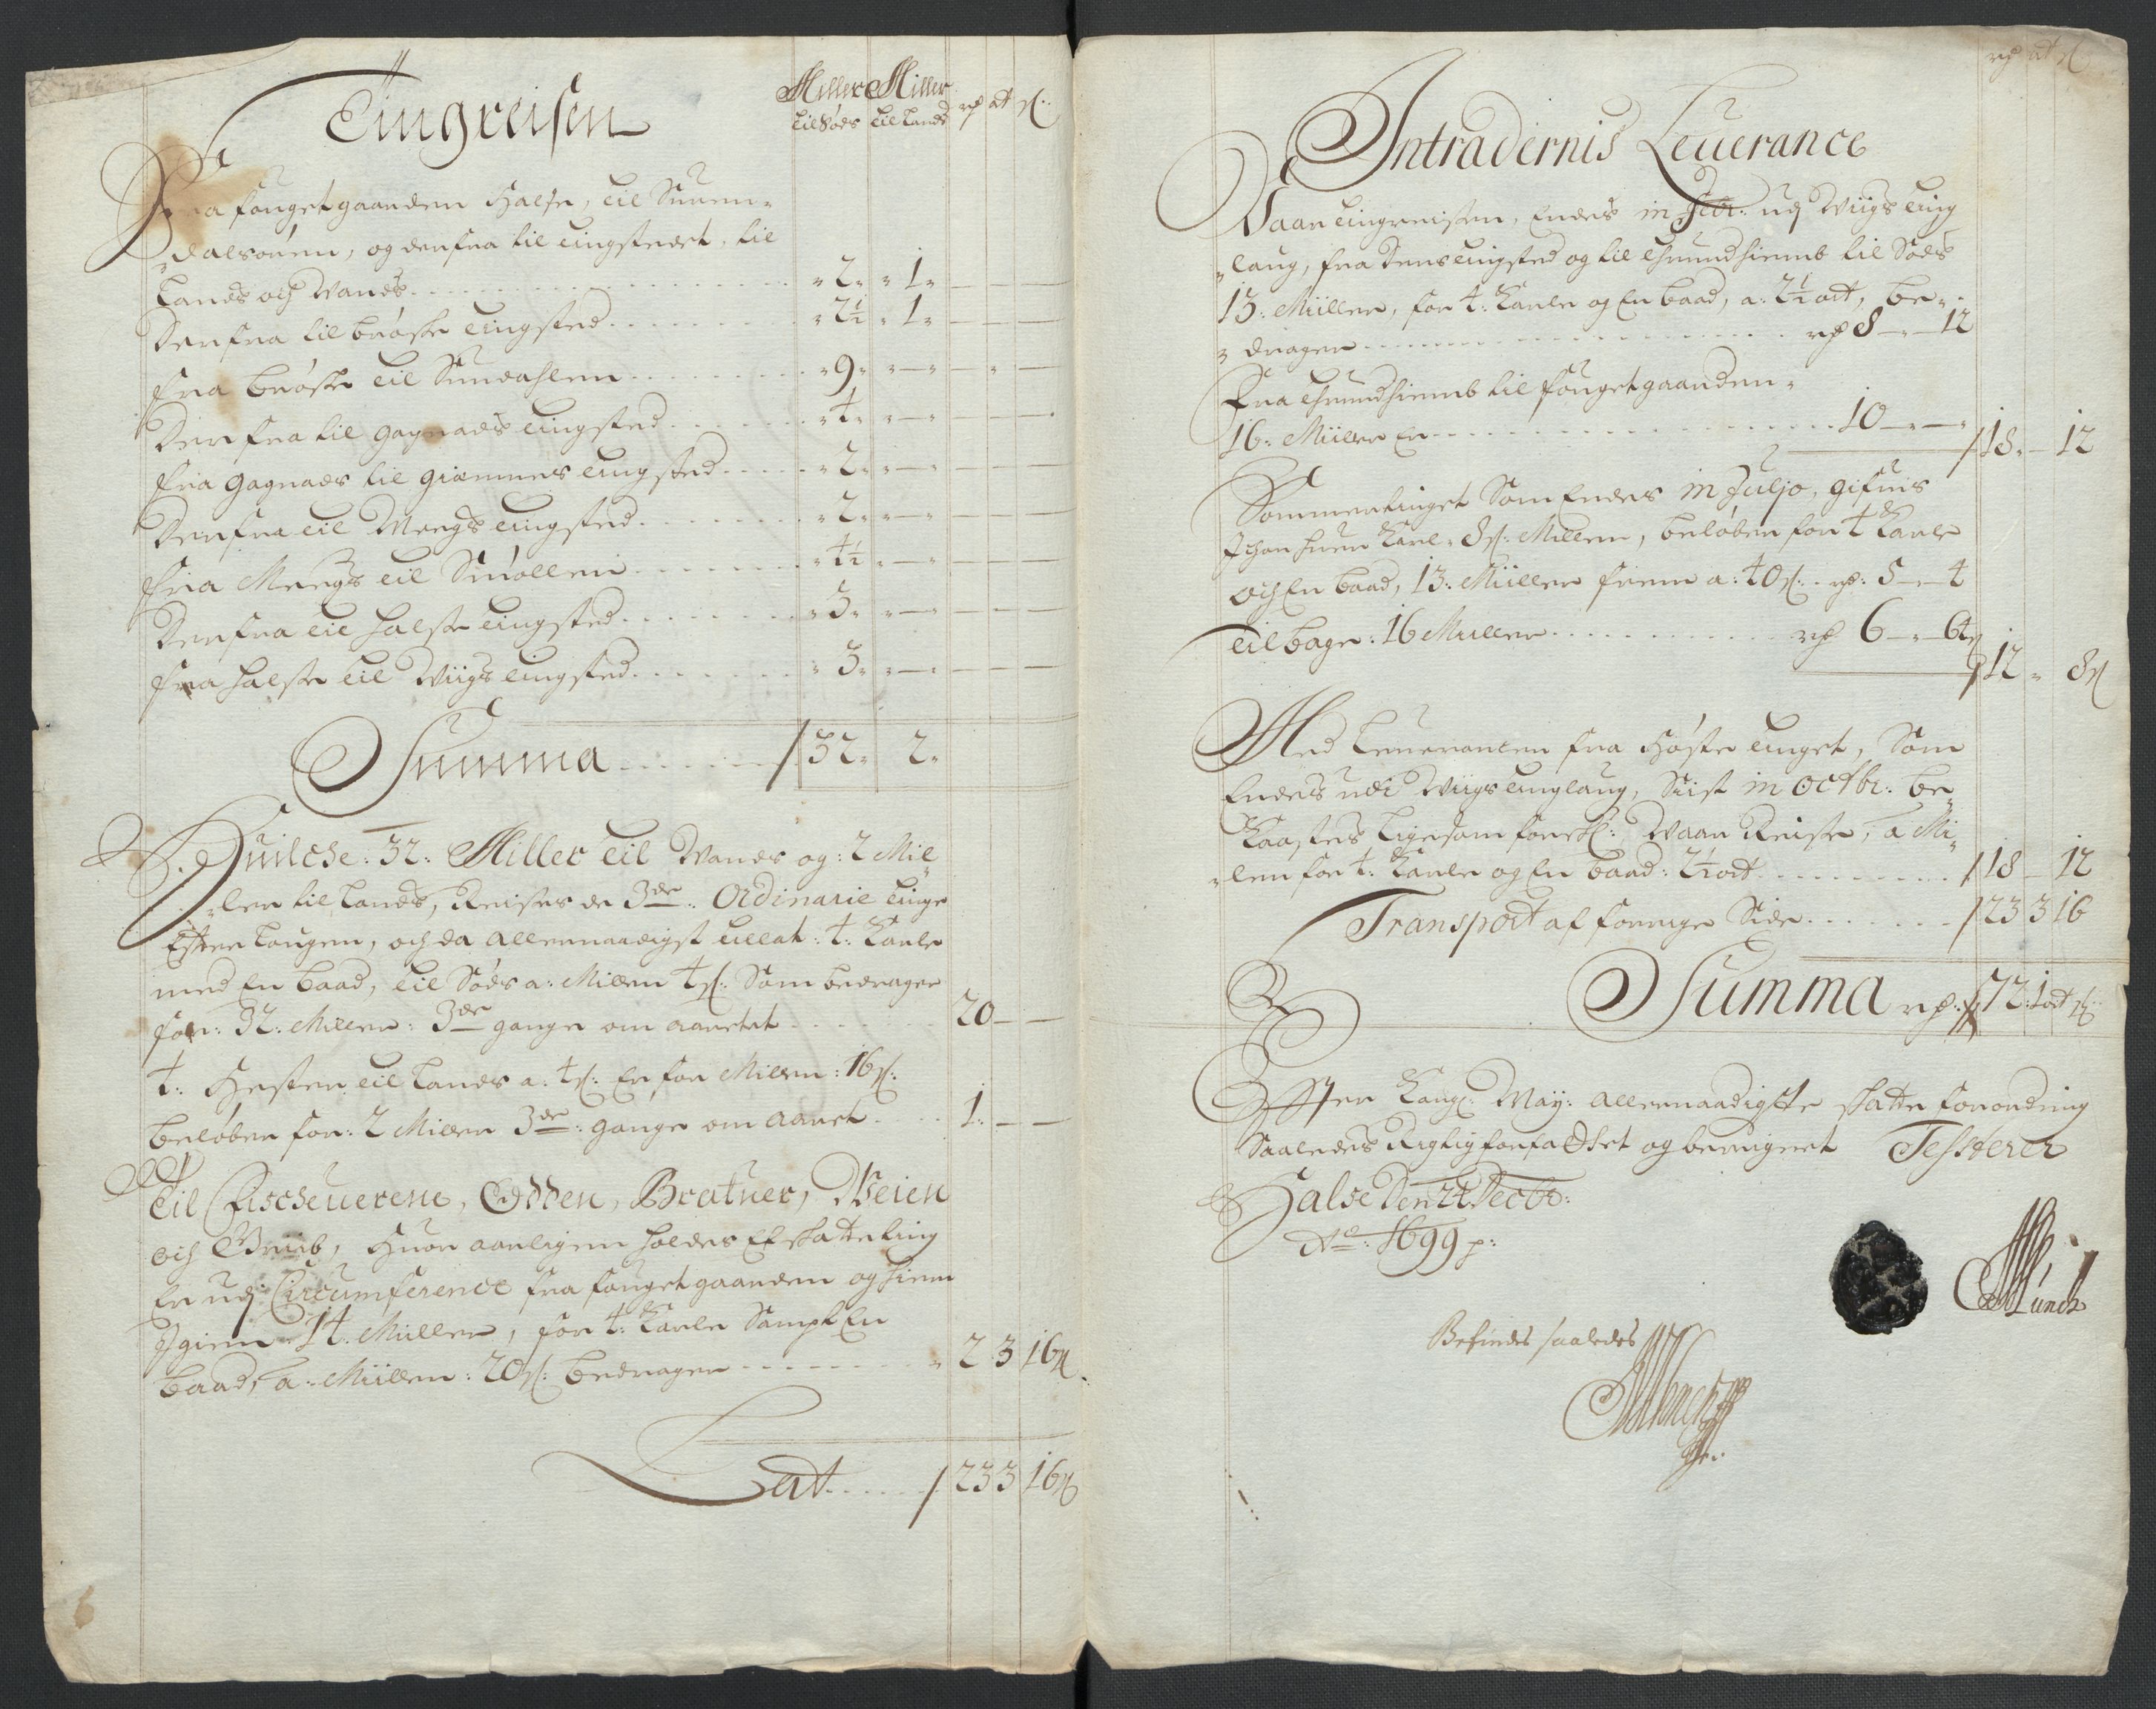 Tingreisen
Miller Miller
til Søes til Lands rd ort s:
Fra fougetgaarden Halse, til Suren-
dalsøren, og derfra til tingstedet, til
Lands och Vands . . . 2 1
Derfra til brøske tingsted . . . 2½ 1
fra brøske til Sundahlen . . . 9
Derfra til gagnads tingsted . . . 4
fra gagnads til giømnes tingsted . . . 2
Derfra til Mæegs tingsted . . . 2
fra Mæegs til Smøllen . . . 4½
Derfra til halse tingsted . . . 3
fra halse til Viigs tingsted . . . 3
Summa . . . 32 2
Huilche: 32: Miller til Vands og: 2 Mil-
ler til Lands, Reises de 3de: Ordinarie tinge
Effter Lougen, och da allernaadigst tillat: 4: Karle
med En baad, til Søes a: Milen 4 s: Som bedrager
for: 32: Miller: 3de gange om aaret . . . 20 — —
4: Hester til Lands a: 4 s: Er for Milen: 16 s:
beløber for: 2 Miller 3de: gange om aaret . . . 1: — —
Til Fischeuerene, Odden, Bratuer, Veien
och Griib, Huor aarligen holdes Et skatteting
Er udj Circumference fra fougetgaarden og hiem
Igien 14: Miiller, for 4: Karle Sampt En
baad, a: Miilen: 20 s: bedrager . . . 2 3 16 s
Lat . . . 23 3 16 s
rd ort s
Intradernis Leuerance
Vaartingreisen, Endes in Febr: udj Viigs ting-
laug, fra Dens tingsted og til Thrundhiemb til Søes
13: Miiller, for 4: Karle og En baad, a: 2½ ort, be-
drager . . . rd 8 — 12
Fra Thrundhiemb til fougetgaarden
16: Miiler Er . . . 10 — —
18 — 12
Sommertinget Som Endes in Juljo, gifuis
huer Karl 8 s: Millen, beløber for 4 Karle
och En baad, 13: Miiller frem a: 40 s: rd: 5 — 4
tilbage: 16 Miiller . . . rd 6 — 64
12 8 s
Med Leuerancen fra Høste tinget, Som
Endes udi Viigs tinglaug, Siist in Octbr: be-
Kaastes Ligesom forschr: Vaar Reise, a Mi-
len for 4: Karle og En baad: 2½ ort . . . 18 — 12
Transport af forrige Side . . . 23 3 16
Summa rd: 72: 1 ort s
Effter Kongl: May: allernaadigste skatte forordning
Saaledes Rigtig forfattet og beregnet Testerer
Halse Den 24 Decbr:
Ao: 1699 p:
Münch
Befindes saaledes